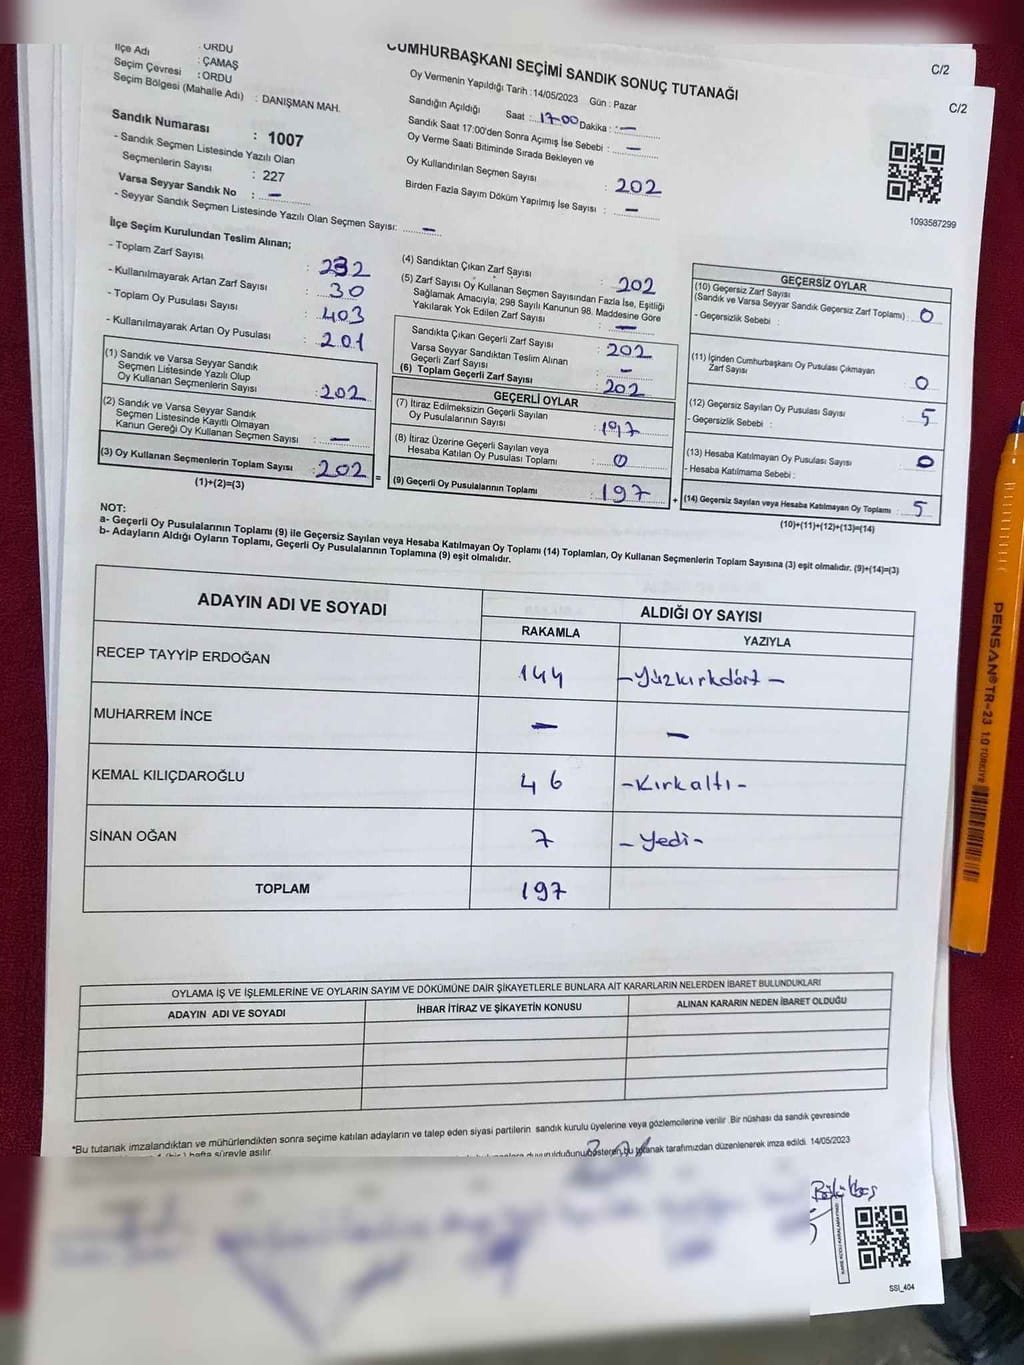 CUMHURBAŞKANI SEÇİMİ SANDIK SONUÇ TUTANAĞI
C/2
C/2
İlçe Adı : ORDU
Seçim Çevresi : ÇAMAŞ
Seçim Bölgesi (Mahalle Adı) : ORDU
: DANIŞMAN MAH.
Sandık Numarası : 1007
- Sandık Seçmen Listesinde Yazılı Olan
Seçmenlerin Sayısı : 227
Varsa Seyyar Sandık No : -
- Seyyar Sandık Seçmen Listesinde Yazılı Olan Seçmen Sayısı: -
Oy Vermenin Yapıldığı Tarih : 14/05/2023 Gün : Pazar
Sandığın Açıldığı Saat : 17.00 Dakika : -
Sandık Saat 17:00'den Sonra Açımış İse Sebebi : -
Oy Verme Saati Bitiminde Sırada Bekleyen ve
Oy Kullandırılan Seçmen Sayısı : 202
Birden Fazla Sayım Döküm Yapılmış İse Sayısı : -
1093587299
İlçe Seçim Kurulundan Teslim Alınan;
- Toplam Zarf Sayısı : 232
- Kullanılmayarak Artan Zarf Sayısı : 30
- Toplam Oy Pusulası Sayısı : 403
- Kullanılmayarak Artan Oy Pusulası : 201
(1) Sandık ve Varsa Seyyar Sandık
Seçmen Listesinde Yazılı Olup
Oy Kullanan Seçmenlerin Sayısı : 202
(2) Sandık ve Varsa Seyyar Sandık
Seçmen Listesinde Kayıtlı Olmayan
Kanun Gereği Oy Kullanan Seçmen Sayısı : -
(3) Oy Kullanan Seçmenlerin Toplam Sayısı : 202 =
(1)+(2)=(3)
(4) Sandıktan Çıkan Zarf Sayısı : 202
(5) Zarf Sayısı Oy Kullanan Seçmen Sayısından Fazla İse, Eşitliği
Sağlamak Amacıyla, 298 Sayılı Kanunun 98. Maddesine Göre
Yakılarak Yok Edilen Zarf Sayısı : -
Sandıkta Çıkan Geçerli Zarf Sayısı : 202
Varsa Seyyar Sandıktan Teslim Alınan
Geçerli Zarf Sayısı : -
(6) Toplam Geçerli Zarf Sayısı : 202
GEÇERLİ OYLAR
(7) İtiraz Edilmeksizin Geçerli Sayılan
Oy Pusulalarının Sayısı : 197
(8) İtiraz Üzerine Geçerli Sayılan veya
Hesaba Katılan Oy Pusulası Toplamı : 0
(9) Geçerli Oy Pusulalarının Toplamı : 197 +
GEÇERSİZ OYLAR
(10) Geçersiz Zarf Sayısı
(Sandık ve Varsa Seyyar Sandık Geçersiz Zarf Toplamı) : 0
- Geçersizlik Sebebi :
(11) İçinden Cumhurbaşkanı Oy Pusulası Çıkmayan
Zarf Sayısı : 0
(12) Geçersiz Sayılan Oy Pusulası Sayısı : 5
- Geçersizlik Sebebi :
(13) Hesaba Katılmayan Oy Pusulası Sayısı : 0
- Hesaba Katılmama Sebebi :
(14) Geçersiz Sayılan veya Hesaba Katılmayan Oy Toplamı : 5
(10)+(11)+(12)+(13)=(14)
NOT:
a- Geçerli Oy Pusulalarının Toplamı (9) ile Geçersiz Sayılan veya Hesaba Katılmayan Oy Toplamı (14) Toplamları, Oy Kullanan Seçmenlerin Toplam Sayısına (3) eşit olmalıdır. (9)+(14)=(3)
b- Adayların Aldığı Oyların Toplamı, Geçerli Oy Pusulalarının Toplamına (9) eşit olmalıdır.
ADAYIN ADI VE SOYADI ALDIĞI OY SAYISI
RAKAMLA YAZIYLA
RECEP TAYYİP ERDOĞAN 144 -Yüzkırkdört-
MUHARREM İNCE - -
KEMAL KILIÇDAROĞLU 46 -Kırkaltı-
SİNAN OĞAN 7 -Yedi-
TOPLAM 197
OYLAMA İŞ VE İŞLEMLERİNE VE OYLARIN SAYIM VE DÖKÜMÜNE DAİR ŞİKAYETLERLE BUNLARA AİT KARARLARIN NELERDEN İBARET BULUNDUKLARI
ADAYIN ADI VE SOYADI İHBAR İTİRAZ VE ŞİKAYETİN KONUSU ALINAN KARARIN NEDEN İBARET OLDUĞU
*Bu tutanak imzalandıktan ve mühürlendikten sonra seçime katılan adayların ve talep eden siyasi partilerin sandık kurulu üyelerine veya gözlemcilerine verilir .Bir nüshası da sandık çevresinde
hafta süreyle asılır. duyurulduğunu gösteren bu tutanak tarafımızdan düzenlenerek imza edildi. 14/05/2023
SSI_404
PENSAN® TR-23 1.0 TÜRKİYE